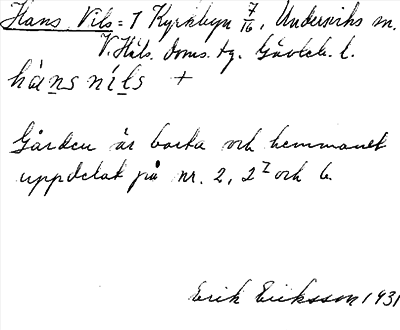 Hans Nils = 1 Kyrkbyn 7/16, Undersviks sn.
V. Häls. doms. tg. Gävleb. l.
hȧns níls +
Gården är borta och hemmanet
uppdelat på nr. 2, 2² och 6.
Erik Eriksson 1931